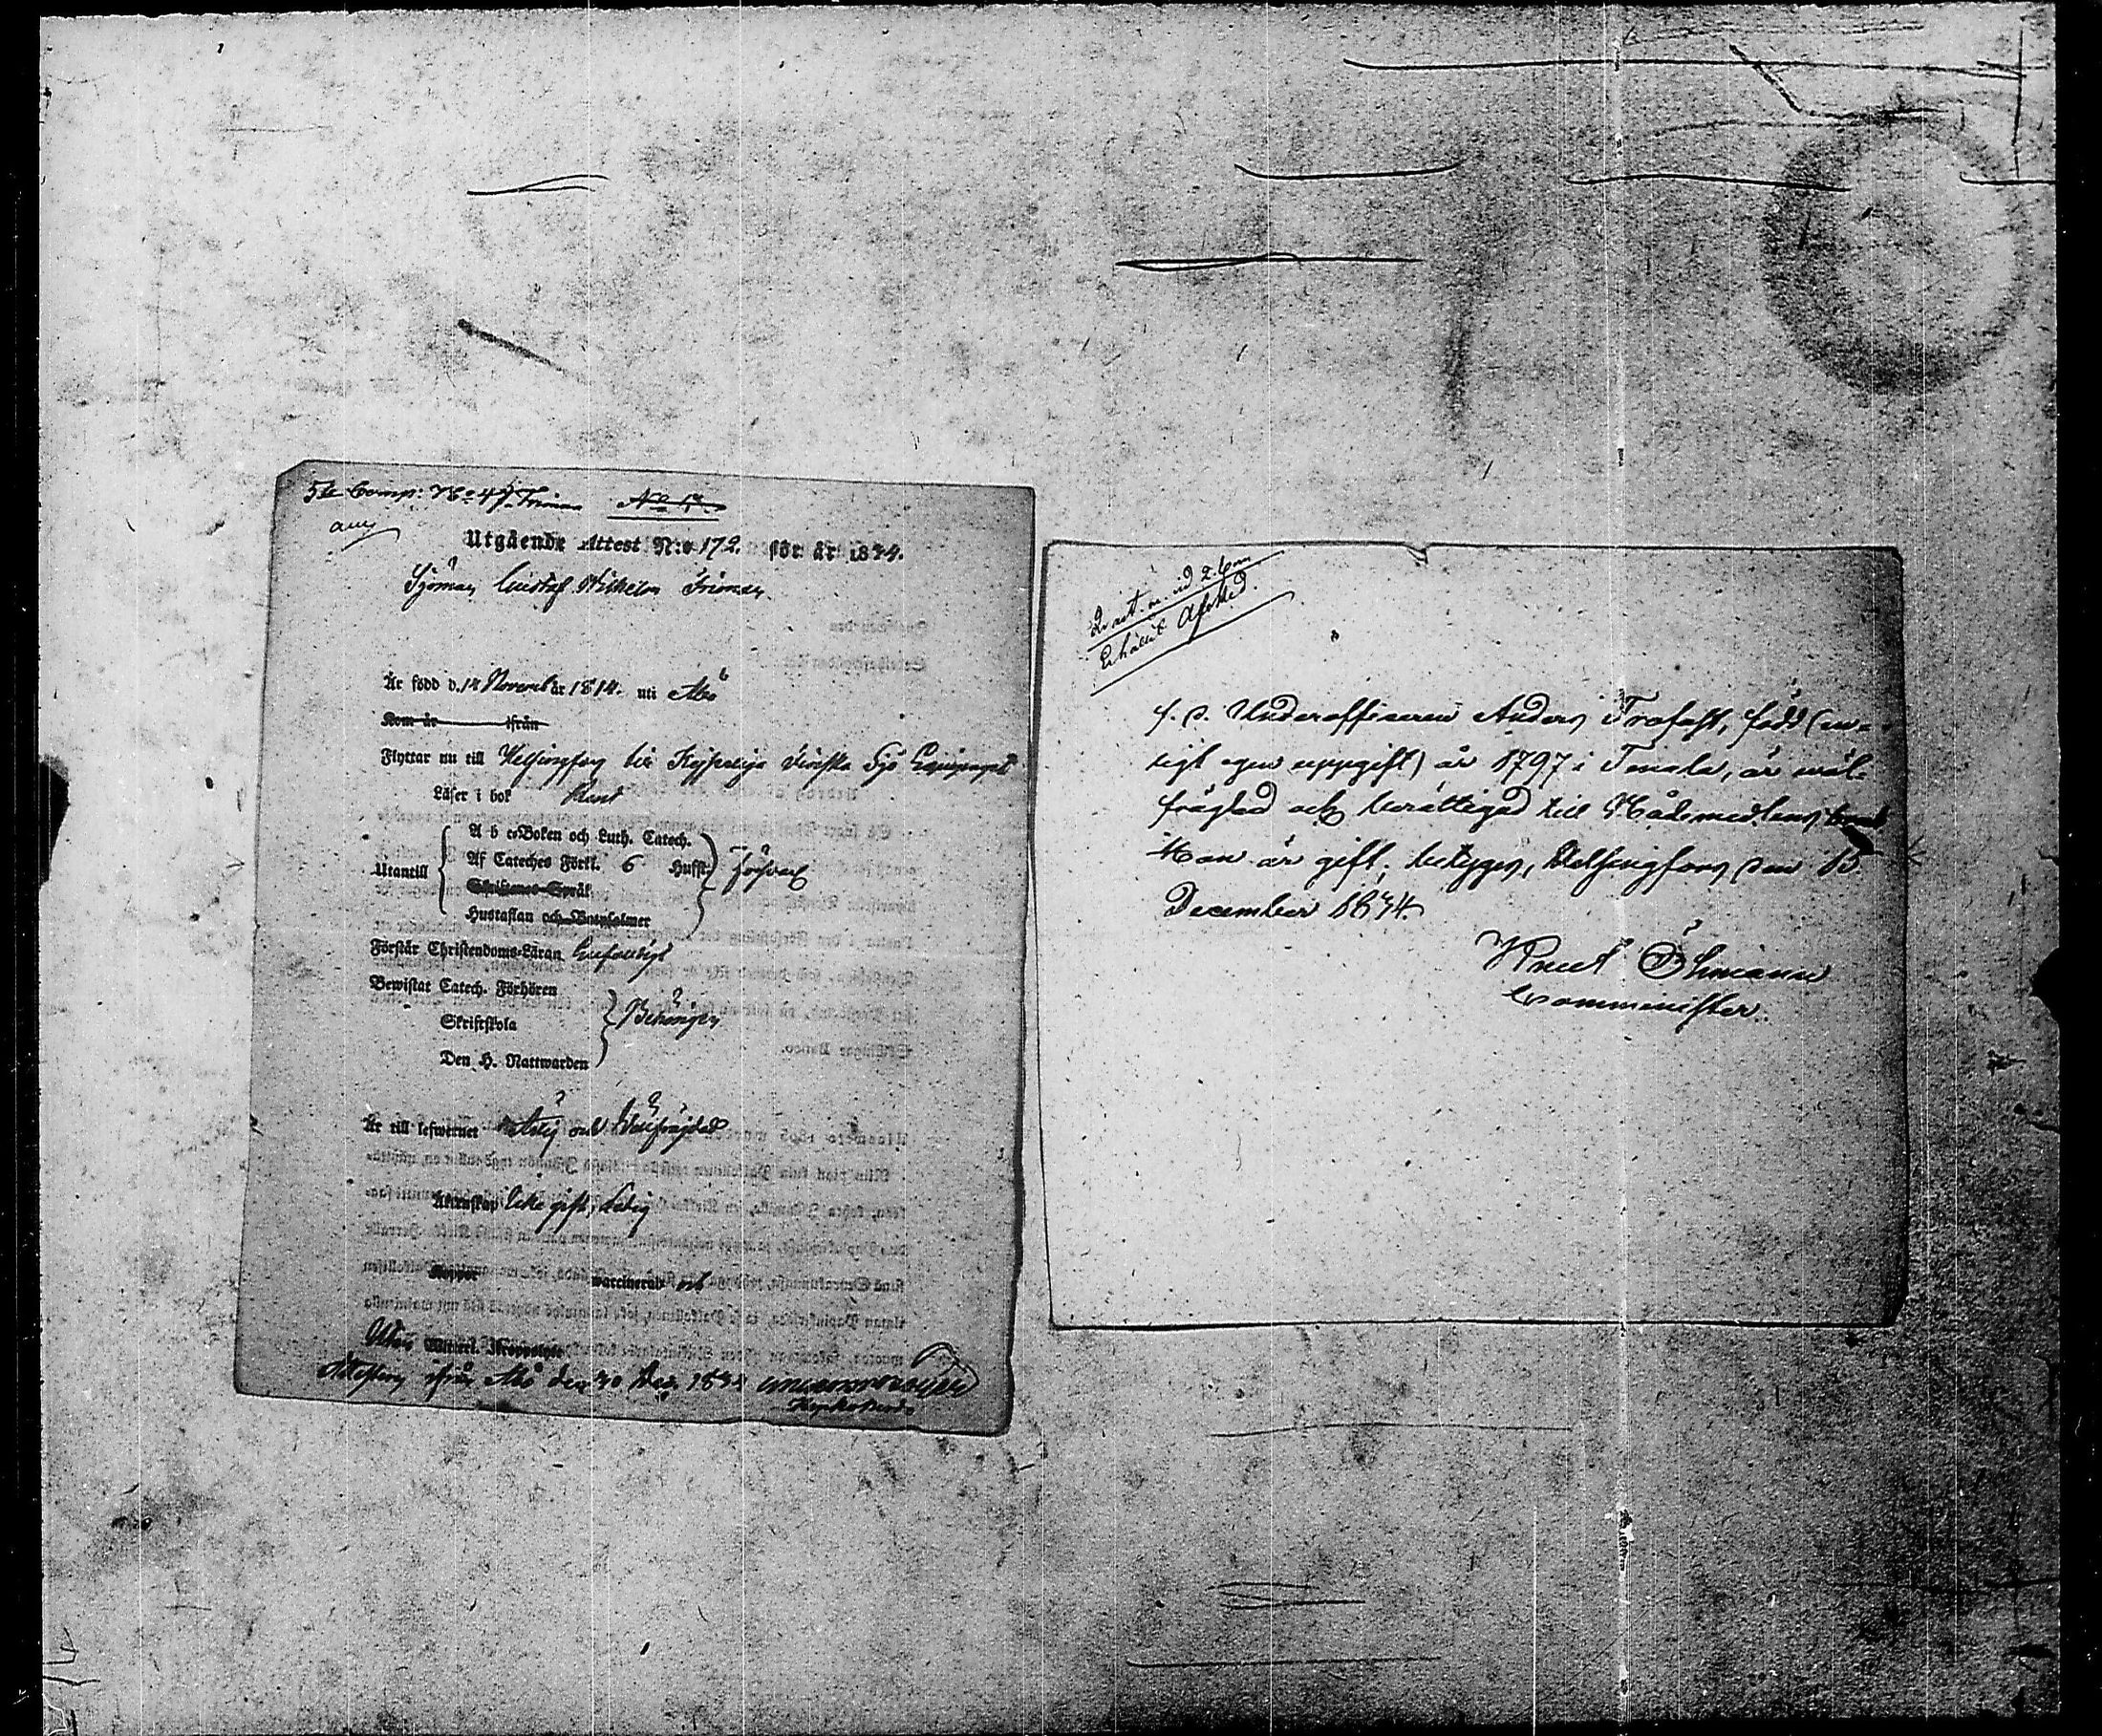 5te Comp: No 47 Friman No 1.
Utgående Attest N:o 172. för år 1834.
Sjöman Gustaf Wilhelm Friman
Är född d. 14 Novemb år 1814. uti Åbo
Kom år ifrån
Flyttar nu till Helsingfors till Kejserliga Finska Sjö Equipaget
Läser i bok Rent
Utantill
A b c-Boken och Luth. Catech.
Af Cateches Förkl. 6 Hufst.
Skriftenes Språk
Hustaflan och Botpsalmer
Förstår Christendoms-Läran Enfaldigt
Bewistat Catech. Förhören
Skriftskola
Den H. Nattwarden
Behörigen
Är till lefwernet Ärlig och Wälfrägdad
Äktenskap Icke gift, Ledig
Koppor waccinerad och
Attesteras ifrån Åbo den 30 Dec. 1834
Erhållit Afsked.
f. d. Underofficeren Anders Trofast, född (en-
ligt egen uppgift) år 1797 i Tenala, är wäl-
frägdad och berättigad till Nådemedlens bruk
Han är gift; betygas, Helsingfors den 15
December 1834.
Knut Öhmann
Comminister.